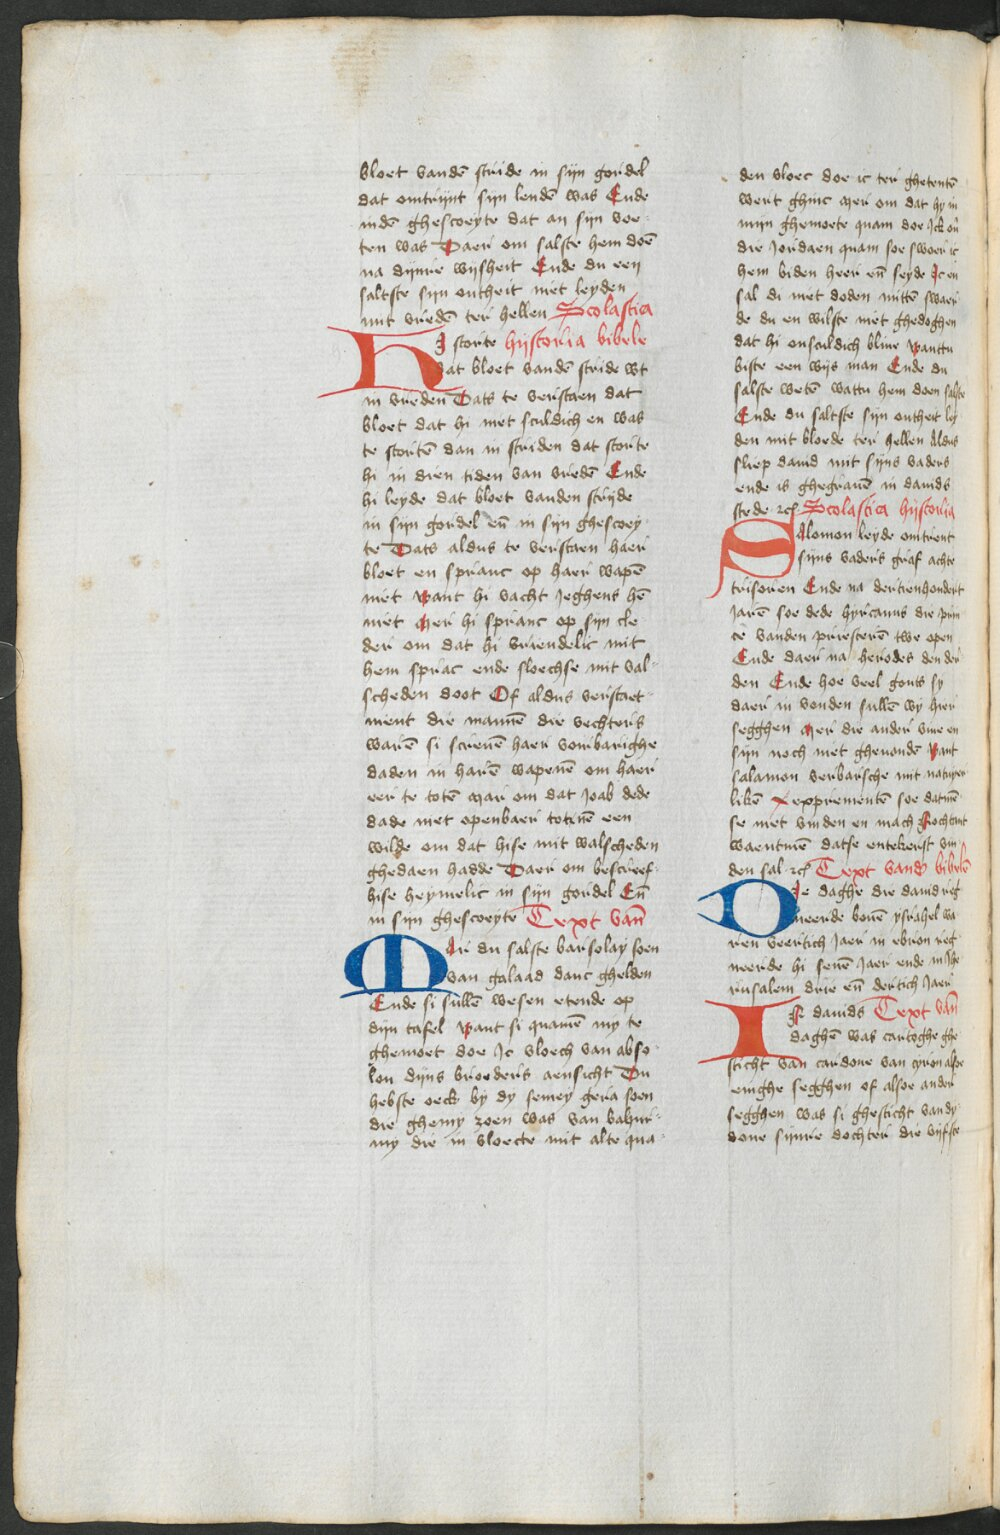 bloet vandē stride in sijn gordel
dat omtrijnt sijn lendē was Ende
indē ghescoeyte dat an sijn voe-
ten was Daer om salste hem doē
na dijnre wijsheit Ende du een
saltste sijn outheit niet leyden
mit vredē ter hellen Scolastica
HI storte hijstoria bibele
dat bloet vandē stride wt
in vreden Dats te verstaen dat
bloet dat hi niet sculdich en was
te stortē dan in striden dat storte
hi in dien tiden van vredē Ende
hi leyde dat bloet vanden strijde
in sijn gordel eñ in sijn ghescoey-
te Dats aldus te verstaen haer
bloet en spranc op haer wapē
niet Want hi vacht jeghens hē
niet Mer hi spranc op sijn cle
der om dat hi vriendelic mit
hem sprac ende sloechse mit val-
scheden doot Of aldus verstaet-
ment die mannē die vechters
warē si screuē haer vorbarighe
daden in harē wapenē om haer
eer te totē Mar om dat Joab dede
dade niet openbaer totenē een
wilde om dat hise mit walscheden
ghedaen hadde Daer om bescreef-
hise heymelic in sijn gordel Eñ
in sijn ghescoeyte Text van̄
MAr du salste barsolay soen
van galaad danc ghelden
Ende si sullē wesen etende op
dijn tafel Want si quamē my te
ghemoet doe Jc vloech van abso-
lon dijns broeders aensicht Du
hebste oeck by dy semey gera soen
die ghemy zoen was van bahur-
my die in vloecte mit alte qua-
den vloec doe ic ter ghetentē
wert ghinc Mer om dat hy in
mijn ghemoete quam doe Jck ou
die Jordaen quam soe swoer ic
hem biden heer eñ seyde Jc en
sal di niet doden mittē swaer
de du en wilste niet ghedoghen
dat hi onsculdich bliue Wanttu
biste een wijs man Ende du
salste wetē wattu hem doen salste
Ende du saltste sijn outheit ley
den mit bloede ter hellen Aldus
sliep dauid mit sijns vaders
ende is ghegrauē in dauids
stede rc̄ Scolastica hijstoria
SAlomon leyde omtrent
sijns vaders graf achte
trisoren Ende na dertienhondert
Jarē soe dede hyrcanus die prin
ce vanden priesterē twe open
Ende daer na herodes den der
den Ende hoe veel gouts sy
daer in vonden sullē wy hier
segghen Mer die ander vive en
sijn noch niet gheuondē Want
salamon verbarsche mit natuyer
likē Exprementē soe datmē
se niet vinden en mach Nochtant
waentmē datse entekerst vin
den sal rc̄ Text vandē bibelē
DIe daghe die dauid reg
neerde bouē ysrahel wa
ren veertich Jaer in ebron reg
neerde hi seuē Jaer ende in Jhe
rusalem drie eñ dertich Jaer
IN dauids Text van̄
daghē was cartoghe ghe
sticht van cardone van cyron alsoe
enighe segghen of alsoe ander
segghen was si ghesticht van dy-
done sijnre dochter die vijfste